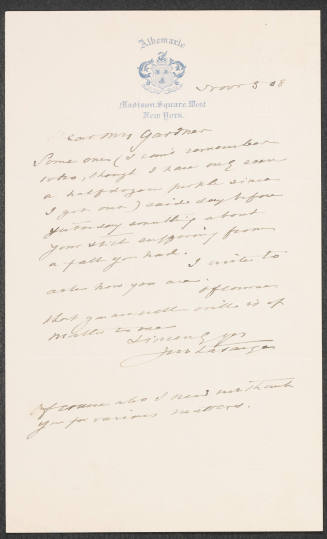 Albemarle
Madison Square West
New York.
Nov 3 08
Dear Mrs Gardner
Some one (I can't remember
who, though I have only seen
a half dozen people since
I got out) said day before
yesterday something about
your still suffering from
a fall you had.
I write to
ask how you are.
Of course
that you are well is of
matter to me
Sincerely yrs
Jno La Farge
Of course also I need not thank
you for various matters.